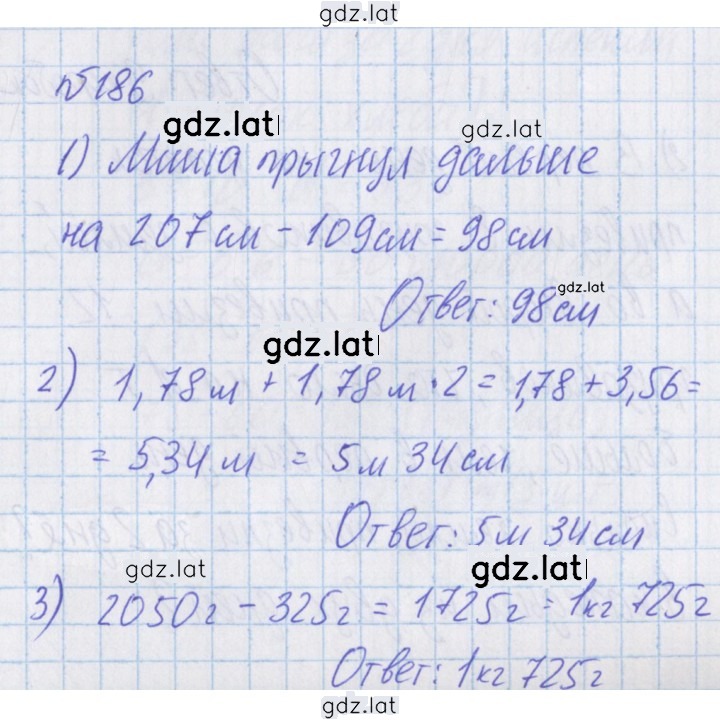 gdz.lat
№186
gdz.lat gdz.lat
1) Миша прыгнул дальше
на 207см - 109см = 98см
gdz.lat
Ответ: 98см
gdz.lat
2) 1,78м + 1,78м·2 = 1,78 + 3,56 =
= 5,34м = 5м 34см
Ответ: 5м 34см
gdz.lat gdz.lat
3) 2050г - 325г = 1725г = 1кг 725г
Ответ: 1кг 725г
gdz.lat